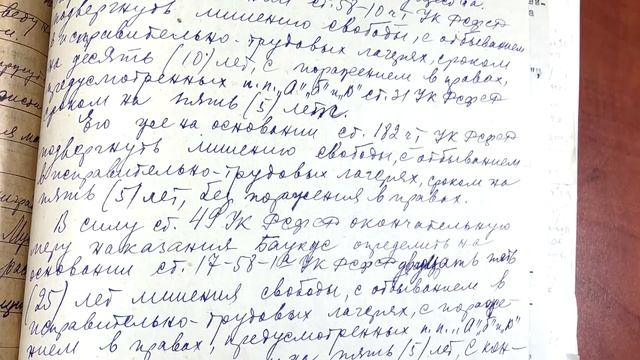 ст. 58-10 ч. 1 УК РСФСР
подвергнуть лишению свободы, с отбыванием
в исправительно-трудовых лагерях, сроком
на десять (10) лет, с поражением в правах,
предусмотренных п.п. „А" „Б" и „В" ст. 31 УК РСФСР
сроком на пять (5) лет.
Его же на основании ст. 182 ч. УК РСФСР
подвергнуть лишению свободы, с отбыванием
в исправительно-трудовых лагерях, сроком на
пять (5) лет, без поражения в правах.
В силу ст. 49 УК РСФСР окончательную
меру наказания Баукус определить на
основании ст. 17-58-1а УК РСФСР двадцать пять
(25) лет лишения свободы, с отбыванием в
исправительно-трудовых лагерях, с пораже-
нием в правах, предусмотренных п.п. „А" „Б" и „В"
на пять (5) лет с кон-